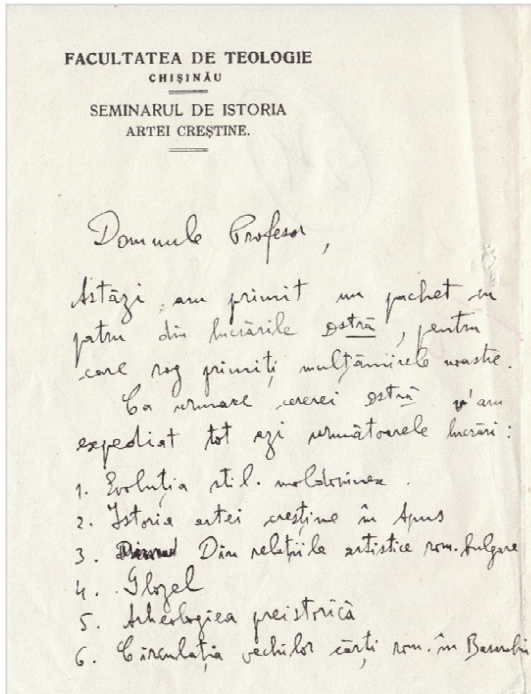 FACULTATEA DE TEOLOGIE
CHIȘINĂU
SEMINARUL DE ISTORIA
ARTEI CREȘTINE.
Domnule Profesor,
Astăzi am primit un pachet cu
patru din lucrările Dstră, pentru
care rog primiți mulțămirele noastre.
Ca urmare cererei Dstră v'am
expediat tot azi următoarele lucrări:
1. Evoluția stil. moldovinesc.
2. Istoria artei creștine în Apus
3. Din relațiile artistice rom. bulgare
4. Glozel
5. Arheologiea preistorică
6. Circulația vechilor cărți rom. în